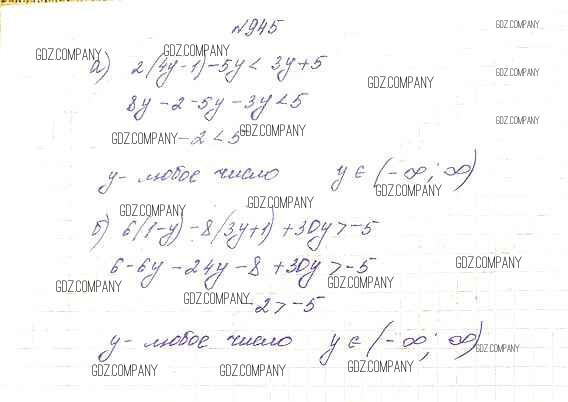 №945
GDZ.COMPANY
GDZ.COMPANY GDZ.COMPANY
а) 2(4y-1)-5y < 3y+5
GDZ.COMPANY GDZ.COMPANY
8y-2-5y-3y<5
GDZ.COMPANY
GDZ.COMPANY -2<5 GDZ.COMPANY
y- любое число y∈(-∞;∞)
GDZ.COMPANY
GDZ.COMPANY GDZ.COMPANY
б) 6(1-y)-8(3y+1)+30y>-5
6-6y-24y-8+30y>-5 GDZ.COMPANY
GDZ.COMPANY GDZ.COMPANY GDZ.COMPANY
-2>-5
y- любое число y∈(-∞;∞)
GDZ.COMPANY
GDZ.COMPANY GDZ.COMPANY GDZ.COMPANY